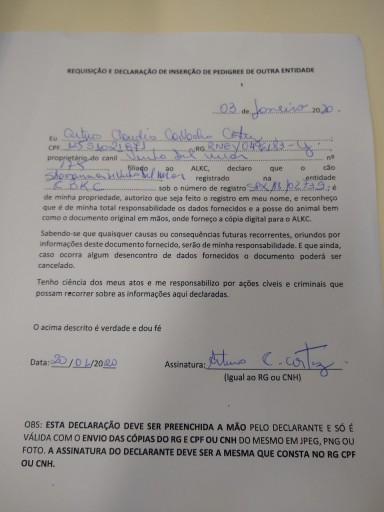 REQUISIÇÃO E DECLARAÇÃO DE INSERÇÃO DE PEDIGREE DE OUTRA ENTIDADE
03 de Janeiro 2020.
Eu Arturo Claudio
CPF RG RNEY047183-Y
proprietário do canil nº
175 filiado ao ALKC, declaro que o cão
registrado na entidade
CDKC sob o número de registro é
de minha propriedade, autorizo que seja feito o registro em meu nome, e reconheço
que é de minha total responsabilidade os dados fornecidos e a posse do animal bem
como o documento original em mãos, onde forneço a cópia digital para o ALKC.
Sabendo-se que quaisquer causas ou consequências futuras recorrentes, oriundos por
informações deste documento fornecido, serão de minha responsabilidade. E que ainda,
caso ocorra algum desencontro de dados fornecidos o documento poderá ser
cancelado.
Tenho ciência dos meus atos e me responsabilizo por ações cíveis e criminais que
possam recorrer sobre as informações aqui declaradas.
O acima descrito é verdade e dou fé
Data: 20/01/2020 Assinatura: Arturo C. Cortez
(Igual ao RG ou CNH)
OBS: ESTA DECLARAÇÃO DEVE SER PREENCHIDA A MÃO PELO DECLARANTE E SÓ É
VÁLIDA COM O ENVIO DAS CÓPIAS DO RG E CPF OU CNH DO MESMO EM JPEG, PNG OU
FOTO. A ASSINATURA DO DECLARANTE DEVE SER A MESMA QUE CONSTA NO RG CPF
OU CNH.